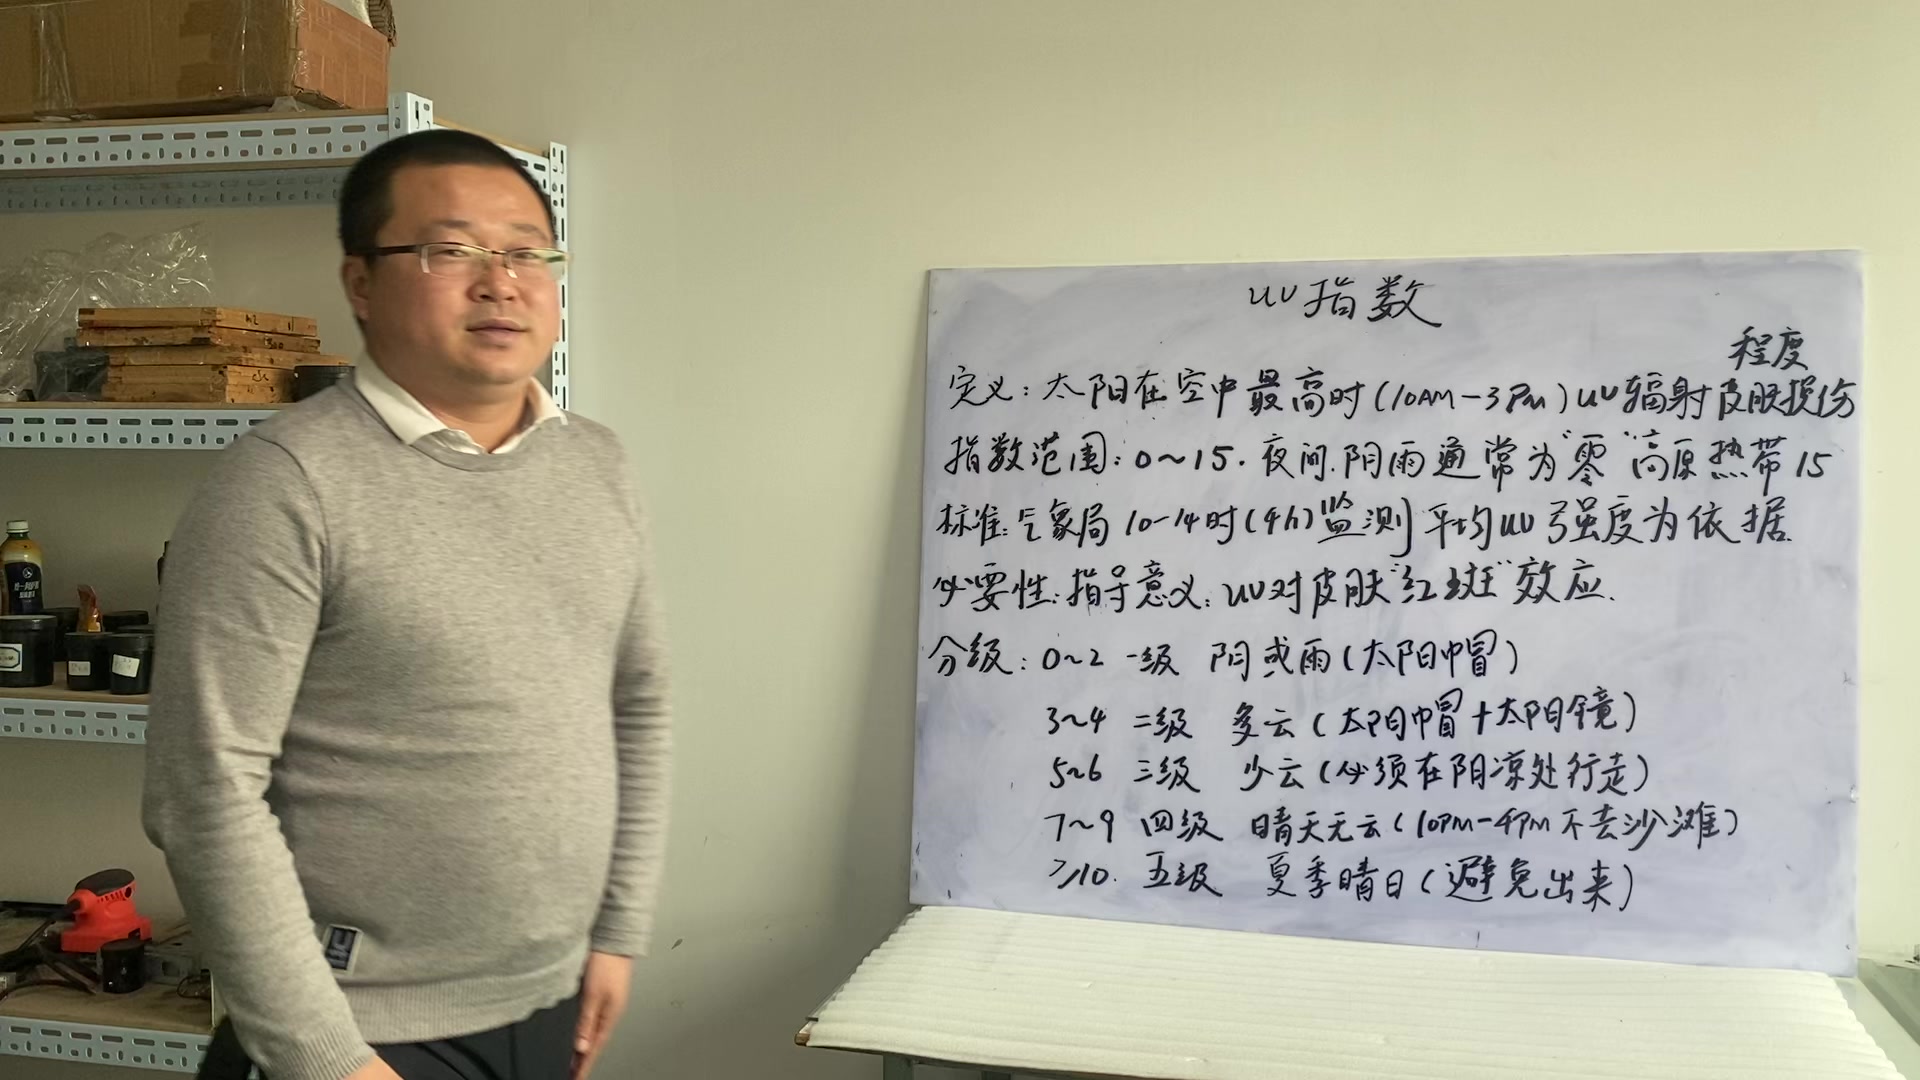 UV指数
程度
定义:太阳在空中最高时(10AM-3PM)UV辐射皮肤损伤
指数范围:0~15.夜间.阴雨通常为"零"高原热带15
标准:气象局10-14时(4h)监测平均UV强度为依据.
必要性:指导意义:UV对皮肤"红斑"效应.
分级:0~2 一级 阴或雨(太阳帽)
3~4 二级 多云(太阳帽+太阳镜)
5~6 三级 少云(必须在阴凉处行走)
7~9 四级 晴天无云(10PM-4PM不去沙滩)
≥10. 五级 夏季晴日(避免出来)